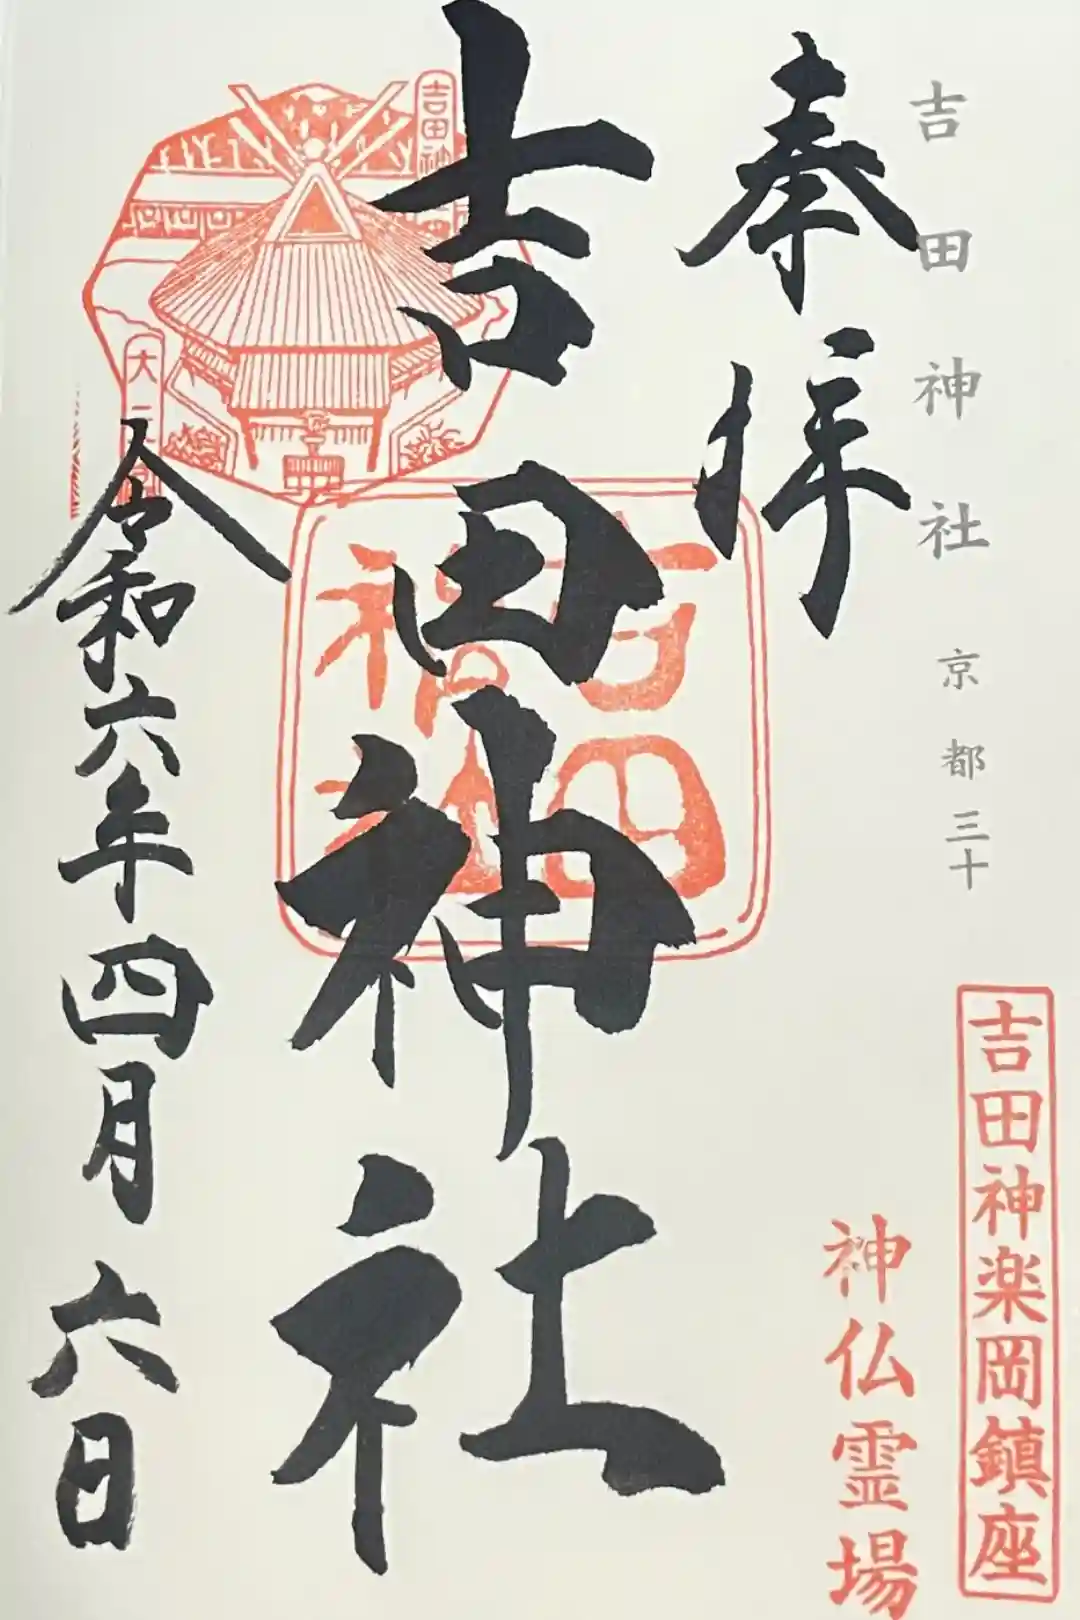 吉田神社 京都三十
吉田神楽岡鎮座
神仏霊場
奉拝
吉田神社
吉田神社
令和六年四月六日